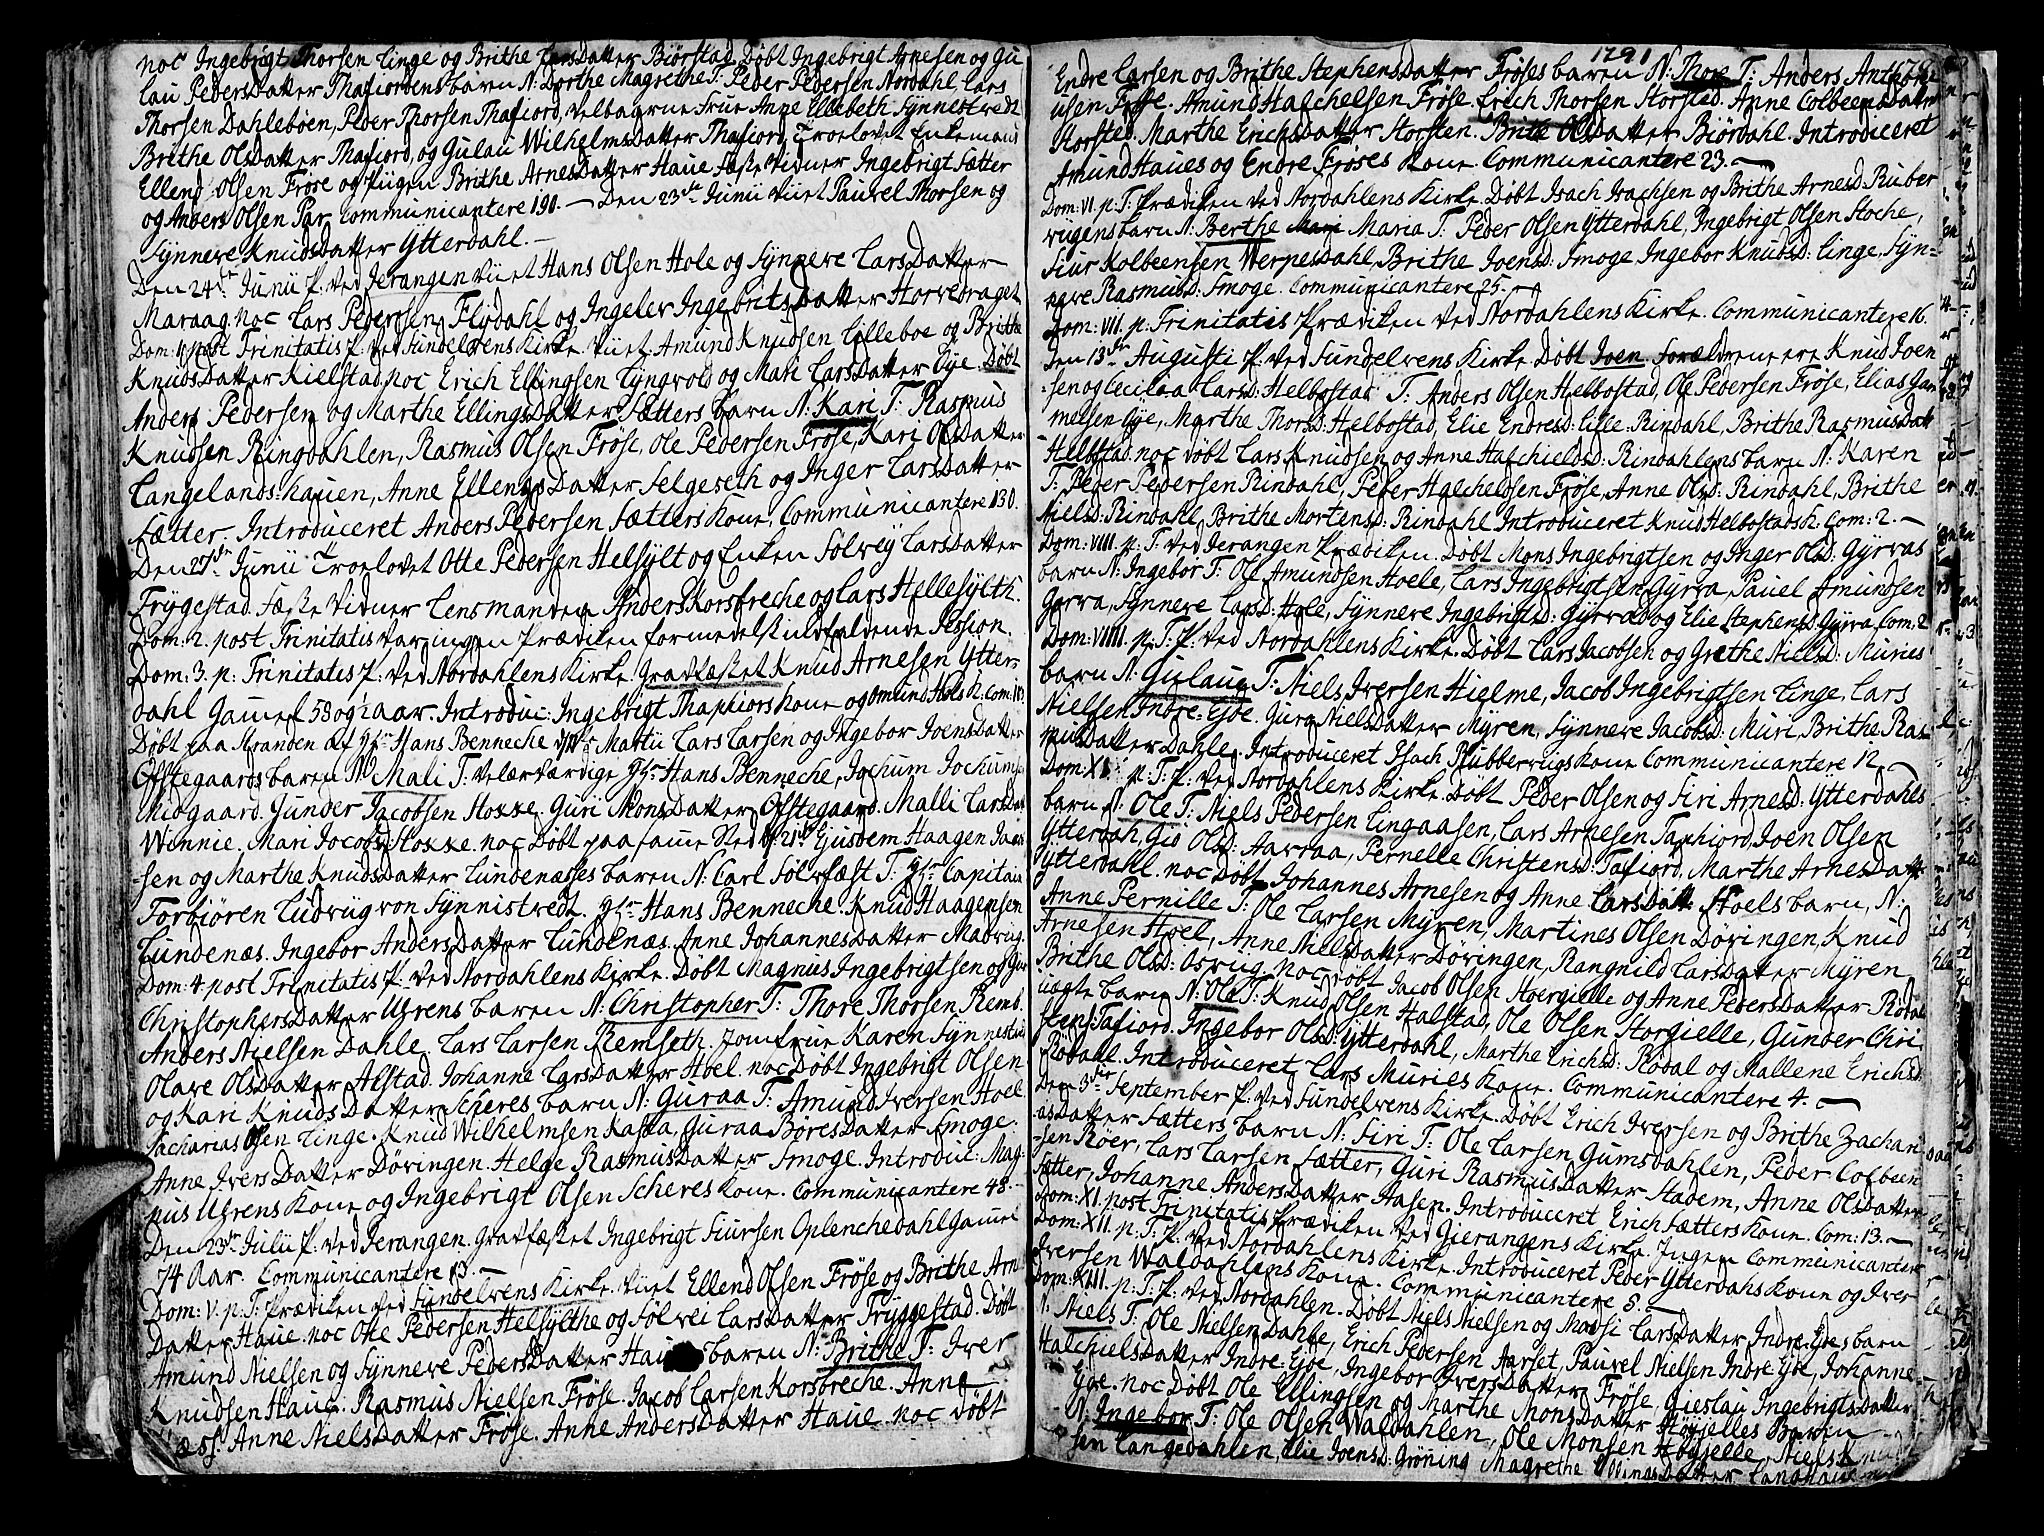 noc Ingebrigt Thorsen Linge og Brithe LarsDatter Biørstad. Døbt Ingebrigt Arnesen og Gu
lau PedersDatter Thafiordens barn N: Dorthe Magrethe T: Peder Pedersen Nordahl, Lars
Thorsen Dahlebøen, Peder Thorsen Thafiord, velbaarne Frue Anne Ellebeth Synnestvedt
Brithe OlsDatter Thafiord, og Gulau WilhelmsDatter Thafiord. Troelovet Enkemand
Ellend Olsen Frøse og Pigen Brithe ArnesDatter Haue Feste Vidner Ingebrigt Sætter
og Anders Olsen Par. Communicantere 190. — Den 23de Junii Viet Pauvel Thorsen og
Synneve KnudsDatter Ytterdahl. —
Den 24de Junii P. ved Jerangen viiet Hans Olsen Hole og Synneve LarsDatter
Maraag. noc Lars Pedersen Flydahl og Ingelev IngebritsDatter Horvedraget
Dom: 1 post Trinitatis P. ved Sundelvens Kirke. Viiet Amund Knudsen Lilleboe og Brithe
KnudsDatter Kielstad, noc Erich Ellingsen Lyngvold og Mari LarsDatter Eye. Døbt
Anders Pedersen og Marthe EllingsDatter Sætters barn N: Kari T: Rasmus
Knudsen Ringdahlen, Rasmus Olsen Frøse, Ole Pedersen Frøse, Kari OlsDatter
Langelands: hauen, Anne EllengsDatter Selgeseth og Inger LarsDatter
Sætter. Introduceret Anders Pedersen Sætters Kone, Communicantere 130.
Den 27de Junii Troelovet Otte Pedersen Helsylt og Enken Solvey LarsDatter
Trygestad. Feste Vidner Lensmanden Anders Korsbreche og Lars Hellesylth.
Dom: 2. post Trinitatis var ingen Prædiken formedelst indfaldende Session.
Dom: 3. p: Trinitatis P. ved Nordahlens Kirke. Gravfæstet Knud Arnesen Ytter
dahl Gamel 58 og ½ aar. Introduc: Ingebrigt Thaphiors Kone og Omund Hols K. Com: 103
Døbt paa Stranden af Hr. Hans Bennecke Martii Lars Larsen og Ingebor JoensDatter
Ofstegaards baren N: Mali T: velærværdige Hr. Hans Bennecke, Jochum Jochumsen
Midgaard. Gunder Jacobsen Hoxxe. Guri MonsDatter Ofstegaard. Malli LarsDatt
Winnie. Mari JacobsD: Hoxxe. noc Døbt paa samme Sted d. 21de Ejusdem Haagen Jaan
sen og Marthe KnudsDatter Lundenæsses baren N: Carl Solvfæst T: Hr. Capitain
Torbiøren Ludvig von Synnistvedt. Hr. Hans Bennecke. Knud Haagensen
Lundenæs. Ingebor AndersDatter Lundenæs. Anne JohannesDatter Madvug.
Dom: 4 post Trinitatis P. ved Nordahlens Kirke. Døbt Magnus Ingebrigtsen og Guri
ChristophersDatter Uhrens baren N: Christopher T: Thore Thorsen Remb.
Anders Nielsen Dahle. Lars Larsen Remseth. Jomfrue Karen Synnestvedt
Olave OlsDatter Alstad. Johanne LarsDatter Hoel. noc Døbt Ingebrigt Olsen
og Kari KnudsDatter Scheres barn N: Guraa T: Amund Iversen Hoel
Zacharias Olsen Linge. Knud Wilhelmsen Kaspa, Guraa BøresDatter Smoge.
Anne IversDatter Døvingen. Helge RasmusDatter Smoge. Introduc: Mag-
nus Uhrens Kone og Ingebrigt Olsen Scheres Kone. Communicantere 48. —
Den 23de Julii P. ved Jerangen. Gravfæstet Ingebrigt Siursen Oplenchedahl Gamel
74 Aar. Communicantere 13. —
Dom: V. p. T: Prædiken ved Sundelvens Kirke. viiet Ellend Olsen Frøse og Brithe Arn
Datter Haue. noc Otte Pedersen Helsylthe og Solvei LarsDatter Tryggestad. Døbt
Amund Nielsen og Synneve PedersDatter Haues baren N: Brithe T: Iver
Knudsen Haue. Rasmus Nielsen Frøse. Jacob Larsen Korsbreche. Anne
Anne NielsDatter Frøse. Anne AndersDatter Haue. noc Døbt
1791
Endre Larsen og Brithe StephensDatter Frøses baren N: Thore T: Anders Anthoni
usen Frøse. Amund Halchelsen Frøse. Erich Thorsen Storsted. Anne ColbeensDatter
Storsted. Marthe ErichsDatter Storsten. Brite OlsDatter Biørdahl. Introduceret
Amund Haues og Endre Frøses Kone. Communicantere 23. —
Dom: VI. p: T: Prædiken ved Nordahlens Kirke. Døbt Isach Isachsen og Brithe ArnesD: Ruber
vigens barn N: Berthe Maria T: Peder Olsen Ytterdahl, Ingebrigt Olsen Stoche,
Siur Kolbeensen Werpesdahl, Brithe JoensD: Smoge Ingebor KnudsD: Linge, Syn-
nove RasmusD: Smoge. Communicantere 25. —
Dom: VII. p. Trinitatis Prædiken ved Nordahlens Kirke. Communicantere 16.
Den 13de Augusti P. ved Sundelvens Kirke Døbt Joen. Forældrene ere Knud Joen
sen og Cecilia LarsD: Helbostad T: Anders Olsen Helbostad, Ole Pedersen Frøse, Elias Jan
melsen Eye, Marthe ThorsD: Helbostad, Elie EndresD: Lille: Rindahl, Brithe RasmusDatt
Helbstad. noc døbt Lars Knudsen og Anne HalchieldsD: Rindahlens barn N: Karen
T: Peder Pedersen Rindahl, Peder Halcheldsen Frøse, Anne OlsD: Rindahl, Brithe
NielsD: Rindahl Brithe MortensD: Rindahl Introduceret Knud Helbostads K. Com: 2. —
Dom: VIII. p. T: ved Jerangen Prædiken. Døbt Mons Ingebrigtsen og Inger OlsD: Gyrvas
barn N: Ingebor T: Ole Amundsen Hoele, Lars Ingebrigtsen Gyrva, Pauel Amundsen
Gørva, Synneve LarsD: Hole, Synneve IngebrigtsD: Gyrva og Elie StephensD: Gyrva Com: 2
Dom: VIIII. p. T: P. ved Nordahlens Kirke. Døbt Lars Jacobsen og Grethe NielsD: Muries
barn N: Gulaug T: Niels Iversen Hielme, Jacob Ingebrigtsen Linge, Lars
Nielsen Indre: Ejde. Gura NielsDatter Myren, Synneve JacobsD: Muri, Brithe Ras
musDatter Dahle. Introduceret Isach Rubbervigs Kone Communicantere 12. —
Dom: X p. T: P. ved Nordahlens Kirke. Døbt Peder Olsen og Siri ArnesD: Ytterdahls
barn N: Ole T: Niels Pedersen Lingaasen, Lars Arnesen Taphiord, Joen Olsen
Ytterdah, Gio OlsD: Aarraa, Pernelle ChristensD: Tafiord, Marthe ArnesDatt
Ytterdahl. noc Døbt Johannes Arnesen og Anne LarsDatt: Hoels barn, N:
Anne Pernille T: Ole Larsen Myren, Martines Olsen Døvingen, Knud
Arnesen Hoel, Anne NielsDatter Døvingen, Rangnild LarsDatter Myren
Brithe OlsD: Osvig. Noc Døbt Jacob Olsen Hoergielle og Anne PedersDatter Rødal
uægte barn N: Ole T: Knud Olsen Halstad, Ole Olsen Storgielle, Gunder Chri
sten Tafiord. Ingebor OlsD: Ytterdahl, Marthe ErichsD: Rødal og Mallene ErichsD:
Rødahl. Introduceret Lars Muries Kone. Communicantere 4. —
Den 3die September P. ved Sundelvens Kirke. Døbt Erich Iversen og Brithe Zachari
asDatter Sætters barn N: Siri T: Ole Larsen Gumsdahlen, Peder Colbeen
sen Roer, Lars Larsen Sætter, Guri RasmusDatter Stadem, Anne OlsDatter
Sætter, Johanne AndersDatter Aasen. Introduceret Erich Sætters Kone. Com: 13. —
Dom: XI. post Trinitatis Prædiken ved Gierangens Kirke. Ingen Communicantere
Dom: XII. p. T: P. ved Nordahlens Kirke. Introduceret Peder Ytterdahs Kone og Iver
Iversen Waldahlens Kone. Communicantere 8. —
Dom: XIII. p. T: P. ved Nordahlen. Døbt Niels Nielsen og Madsi LarsDatter Indre: Eyes barn
N. Niels T: Ole Nielsen Dahle, Erich Pedersen Aarset, Pauvel Nielsen Indre: Eyde, Johanne
HalchielsDatter Indre: Ejde, Ingebor IversDatter Frøse, Gieslau IngebrigtsDatter
Eyde. noc Døbt Ole Ellingsen og Marthe MonsDatter Høyjelles Baren
N: Ingebor T: Ole Olsen Waldahlen, Ole Monsen Høyjelle, Niels Knud
sen Langedahlen, Elie JoensD: Grøning Magrethe EllingsDatter Langhauen